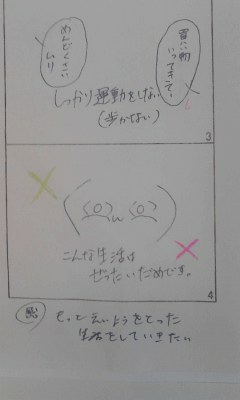 買い物
いってきて。
めんどくさい
ムリ
しっかり運動をしない
(歩かない)
3
こんな生活は
ぜったいだめです。
4
もっとえいようをとった
生活をしていきたい